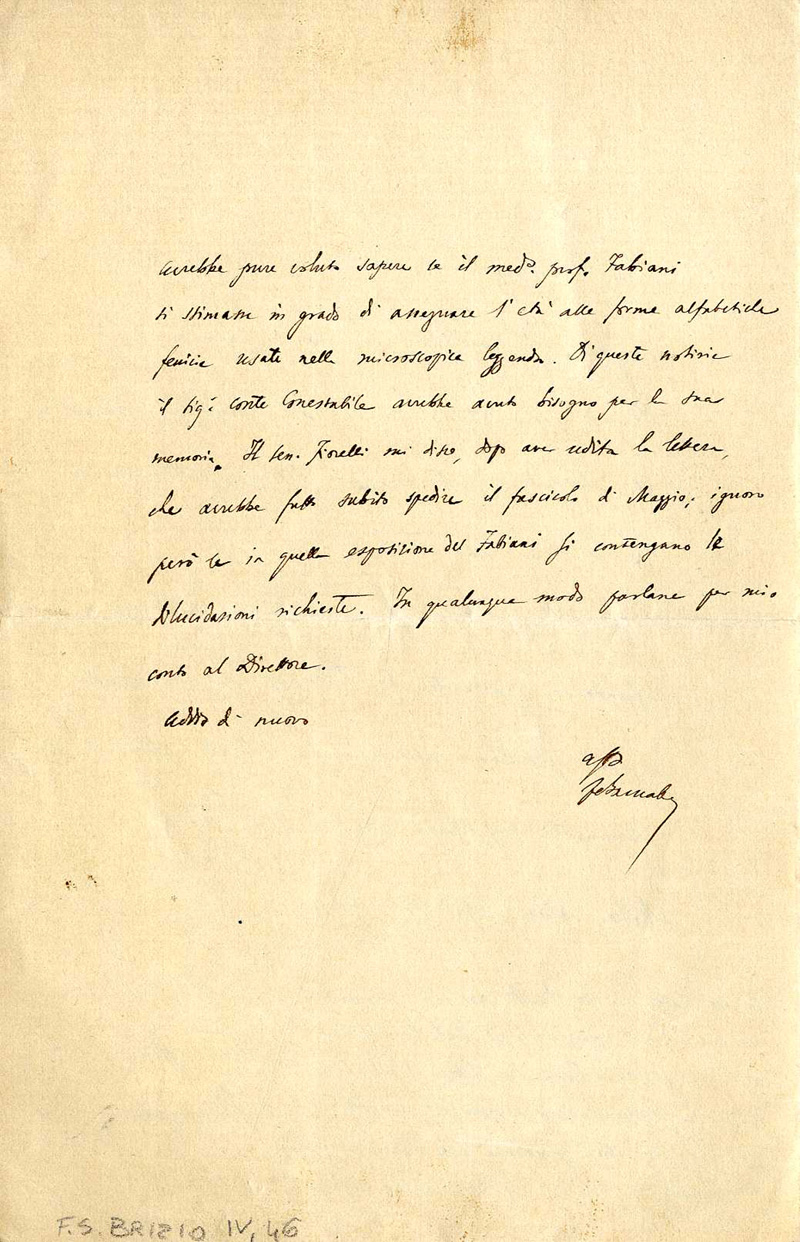 avrebbe pure voluto sapere se il medo. prof. Fabiani
si stimasse in grado di assegnare l'età alle forme alfabetiche
fenicie usate nella microscopica leggenda. Di queste notizie
il sigr. conte Conestabile avrebbe avuto bisogno per la sua
memoria. Il sen. Fiorelli mi disse, dopo aver udita la lettera,
che avrebbe fatto subito spedire il fascicolo di Maggio; ignoro
però se in quella esposizione del Fabiani si contengano le
dilucidazioni richieste. In qualunque modo parlane per mio
conto al Direttore.
Addio di nuovo
affo
FBarnabei
F.S. BRIZIO IV, 46